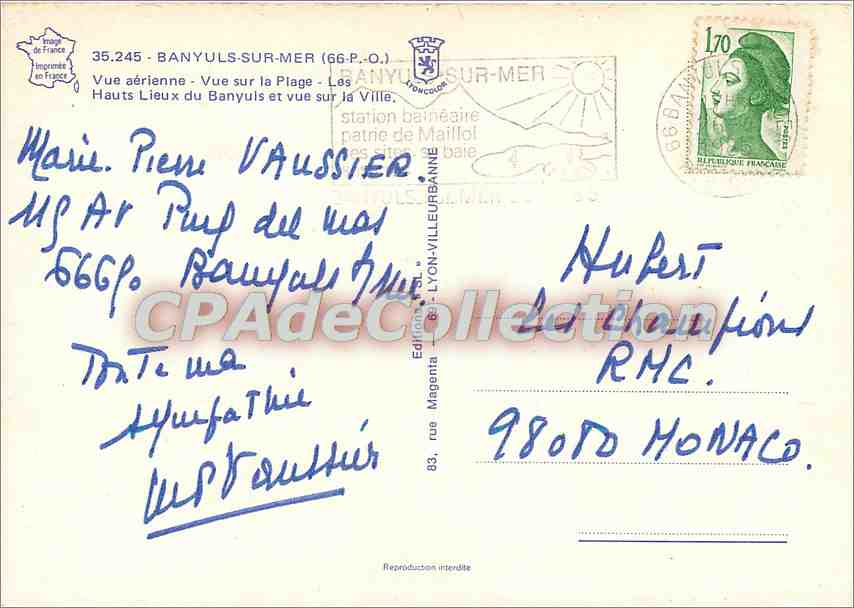 Image
de France
Imprimée
en France
35.245 - BANYULS-SUR-MER (66-P.-O.)
Vue aérienne - Vue sur la Plage - Les
Hauts Lieux du Banyuls et vue sur la Ville.
BANYULS-SUR-MER
station balnéaire
patrie de Maillol
ses sites sa baie
1,70
POSTES
REPUBLIQUE FRANÇAISE
Marie. Pierre VAUSSIER.
119 AV Puig del mas
66650 Banyuls s/mer.
Toute ma
sympathie
MPVaussier
Editions "SL" - 69 - LYON-VILLEURBANNE
83, rue Magenta
Hubert
Les Champions
RMC.
98080 MONACO.
CPAdeCollection
Reproduction interdite